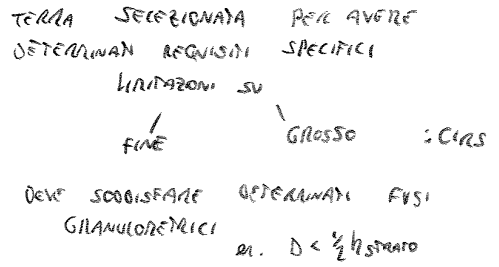 TERRA SELEZIONATA PER AVERE
DETERMINATI REQUISITI SPECIFICI
LIMITAZIONI SU
FINE GROSSO : CIRS
DEVE SODDISFARE DETERMINATI FUSI
GRANULOMETRICI
es. D < 1/2 h STRATO